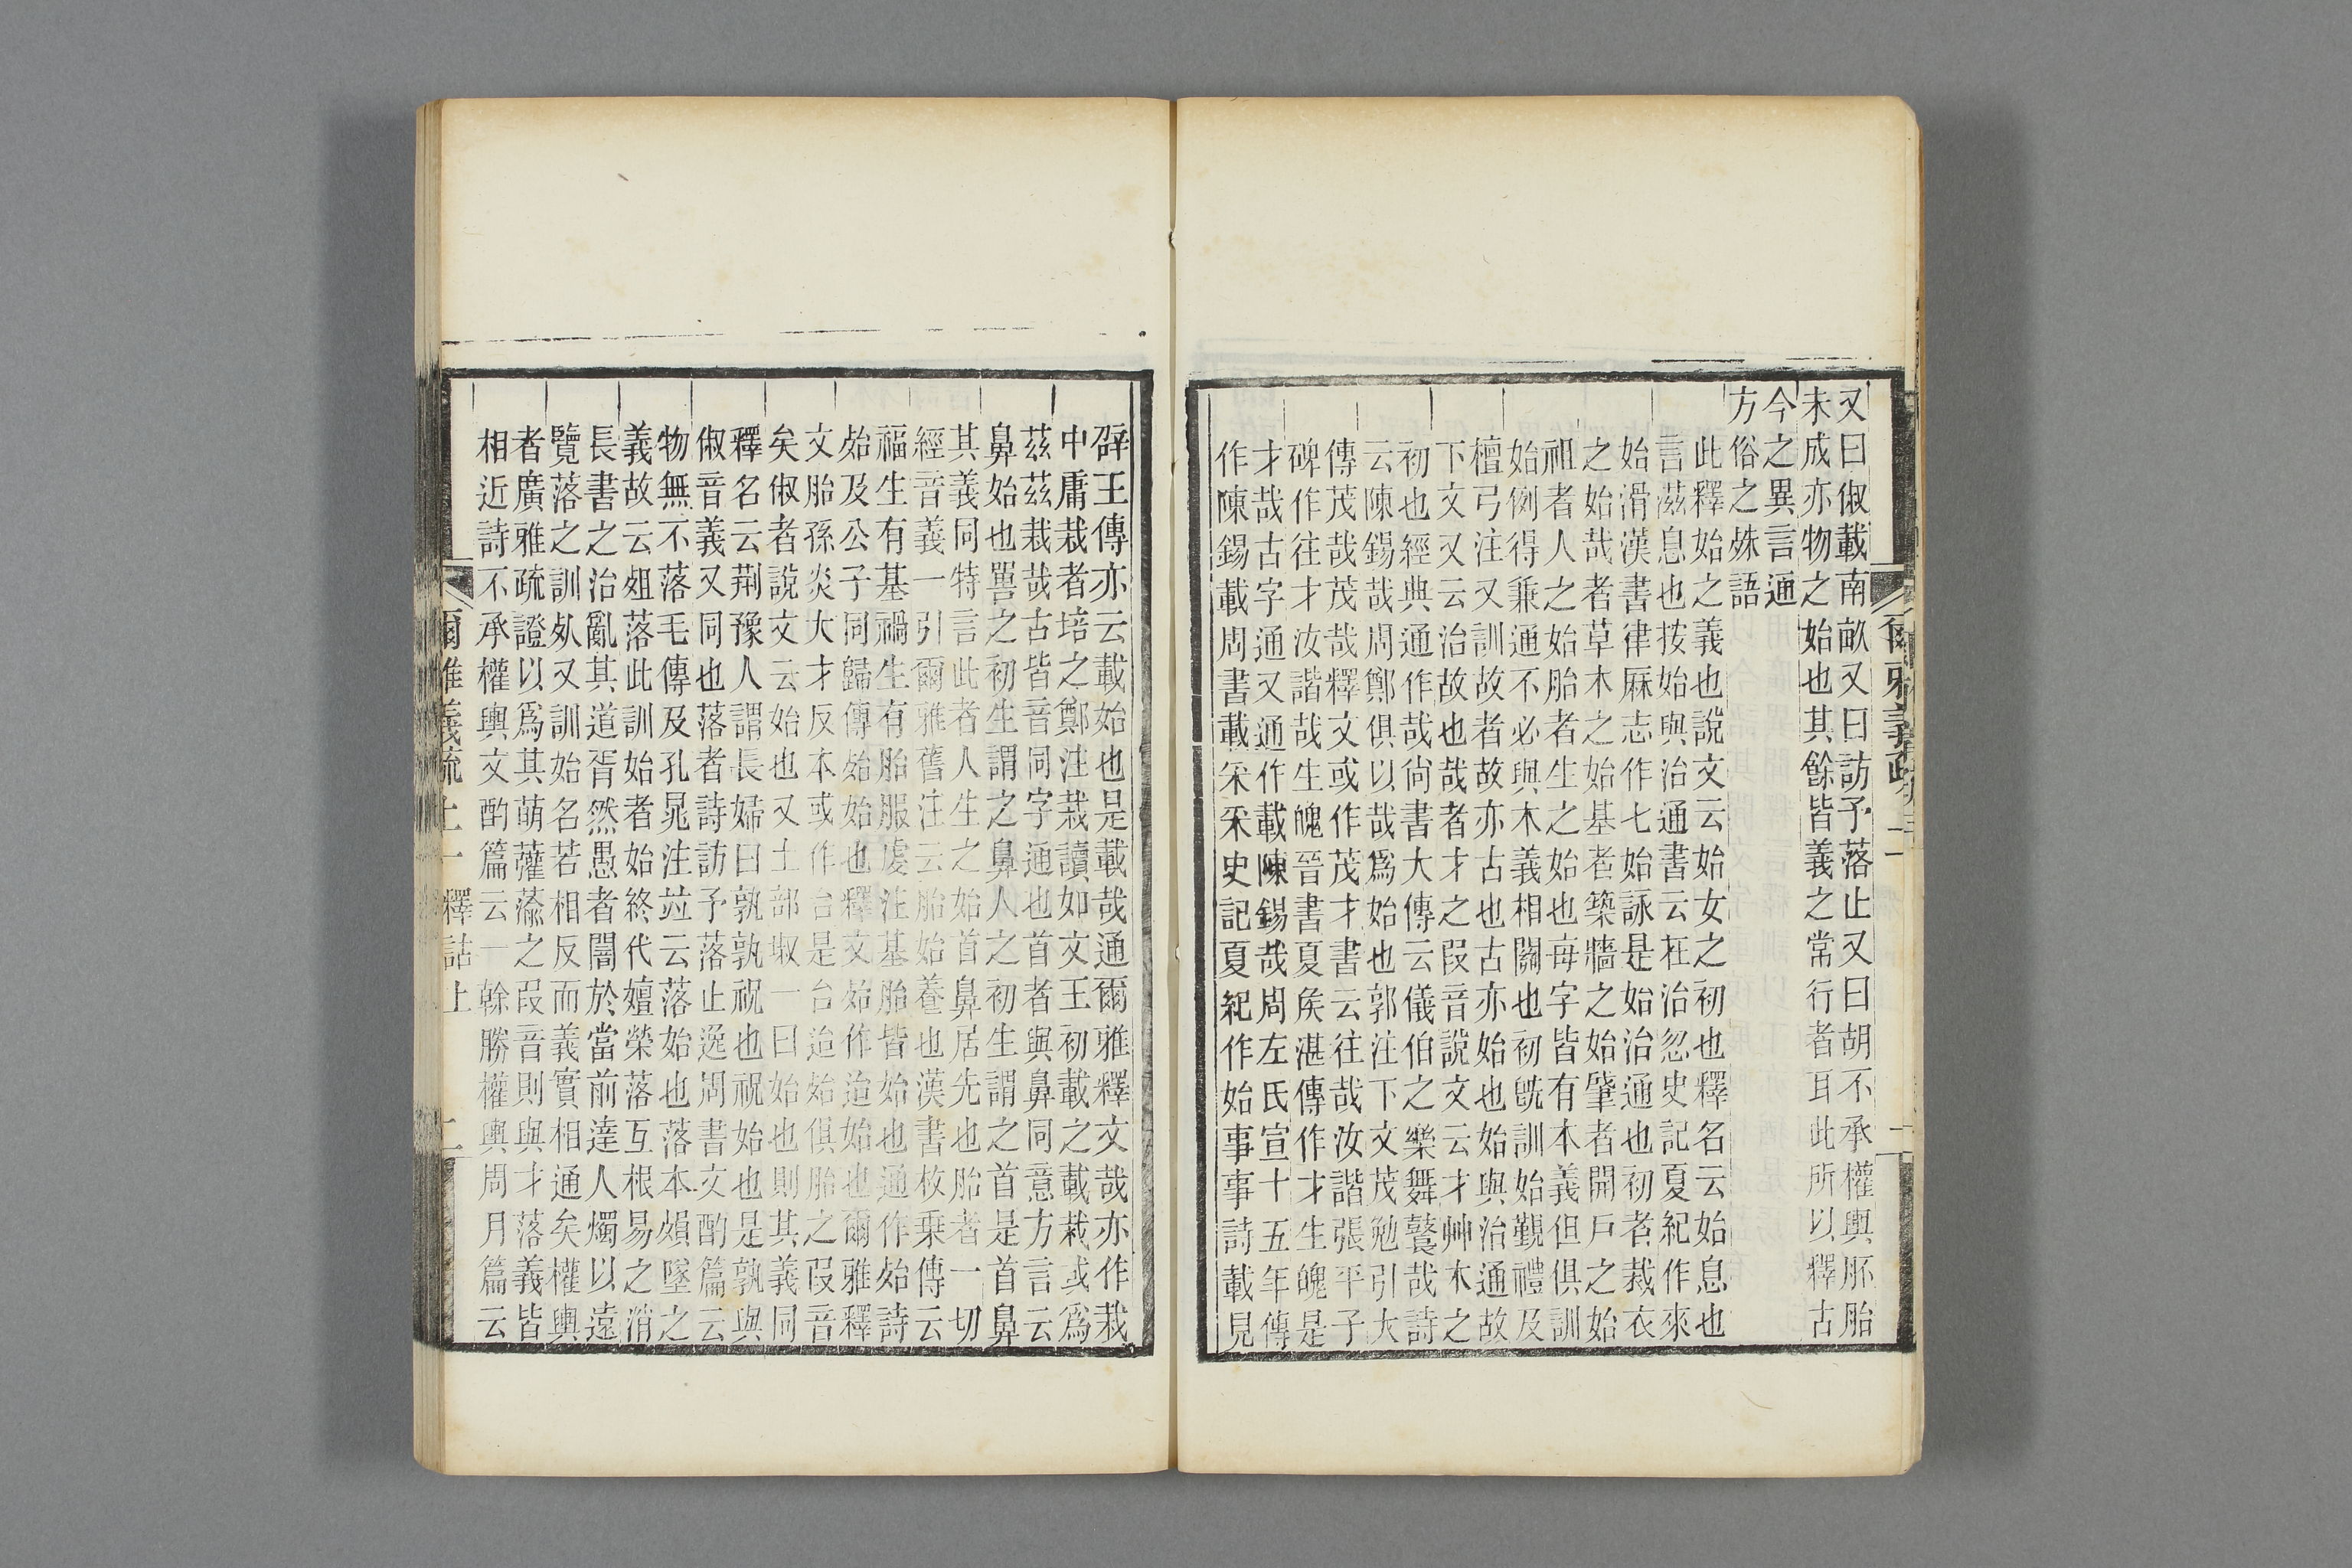 又曰俶載南畝又曰訪予落止又曰胡不承權輿胚胎
未成亦物之始也其餘皆義之常行者耳此所以釋古
今之異言通
方俗之殊語
此釋始之義也說文云始女之初也釋名云始息也
言滋息也按始與治通書云在治忽史記夏紀作來
始滑漢書律厤志作七始詠是始治通也初者裁衣
之始哉者草木之始基者築牆之始肇者開戶之始
祖者人之始胎者生之始也每字皆有本義但俱訓
始例得兼通不必與本義相關也初旣訓始始覲禮及
檀弓注又訓故故者故亦古也古亦始也始與治通故
下文又云治故也哉者才之叚音說文云才艸木之
初也經典通作哉尙書大傳云儀伯之樂舞鼚哉詩
云陳錫哉周鄭俱以哉爲始也郭注下文茂勉引大
傳茂哉茂哉釋文或作茂才書云往哉汝諧張平子
碑作往才汝諧哉生魄晉書夏矦湛傳作才生魄是
才哉古字通又通作載陳錫哉周左氏宣十五年傳
作陳錫載周書載采采史記夏紀作始事事詩載見
辟王傳亦云載始也是載哉通爾雅釋文哉亦作栽
中庸栽者培之鄭注栽讀如文王初載之載栽或爲
茲茲栽哉古皆音同字通也首者與鼻同意方言云
鼻始也嘼之初生謂之鼻人之初生謂之首是首鼻
其義同特言此者人生之始首鼻居先也胎者一切
經音義一引爾雅舊注云胎始養也漢書枚乗傳云
福生有基禍生有胎服虔注基胎皆始也通作始詩
始及公子同歸傳始始也釋文始作迨始也爾雅釋
文胎孫炎大才反本或作台是台迨始俱胎之叚音
矣俶者說文云始也又土部埱一曰始也則其義同
釋名云荆豫人謂長婦曰孰孰祝也祝始也是孰與
俶音義又同也落者詩訪予落止逸周書文酌篇云
物無不落毛傳及孔晁注竝云落始也落本頗墜之
義故云殂落此訓始者始終代嬗榮落互根易之消
長書之治亂其道胥然愚者闇於當前達人燭以遠
覽落之訓𣦸又訓始名若相反而義實相通矣權輿
者廣雅疏證以爲其萌虇蕍之叚音則與才落義皆
相近詩不承權輿文酌篇云一榦勝權輿周月篇云
爾雅義疏上一 釋詁上 二